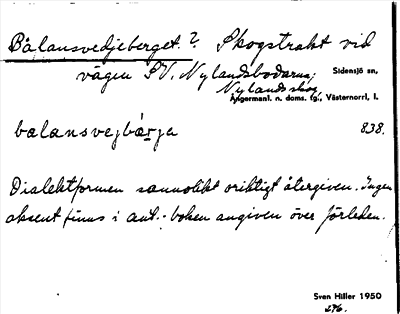 Bålansvedjeberget.? Skogstrakt vid
vägen SV. Nylandsbodarna,
Sidensjö sn,
Nylandsskog.
Ångermanl. n. doms. fg., Västernorrl. l.
bælansvejbærja 838.
Dialektformen sannolikt oriktigt återgiven. Ingen
aksent finns i ant.-boken angiven över förleden.
Sven Hiller 1950